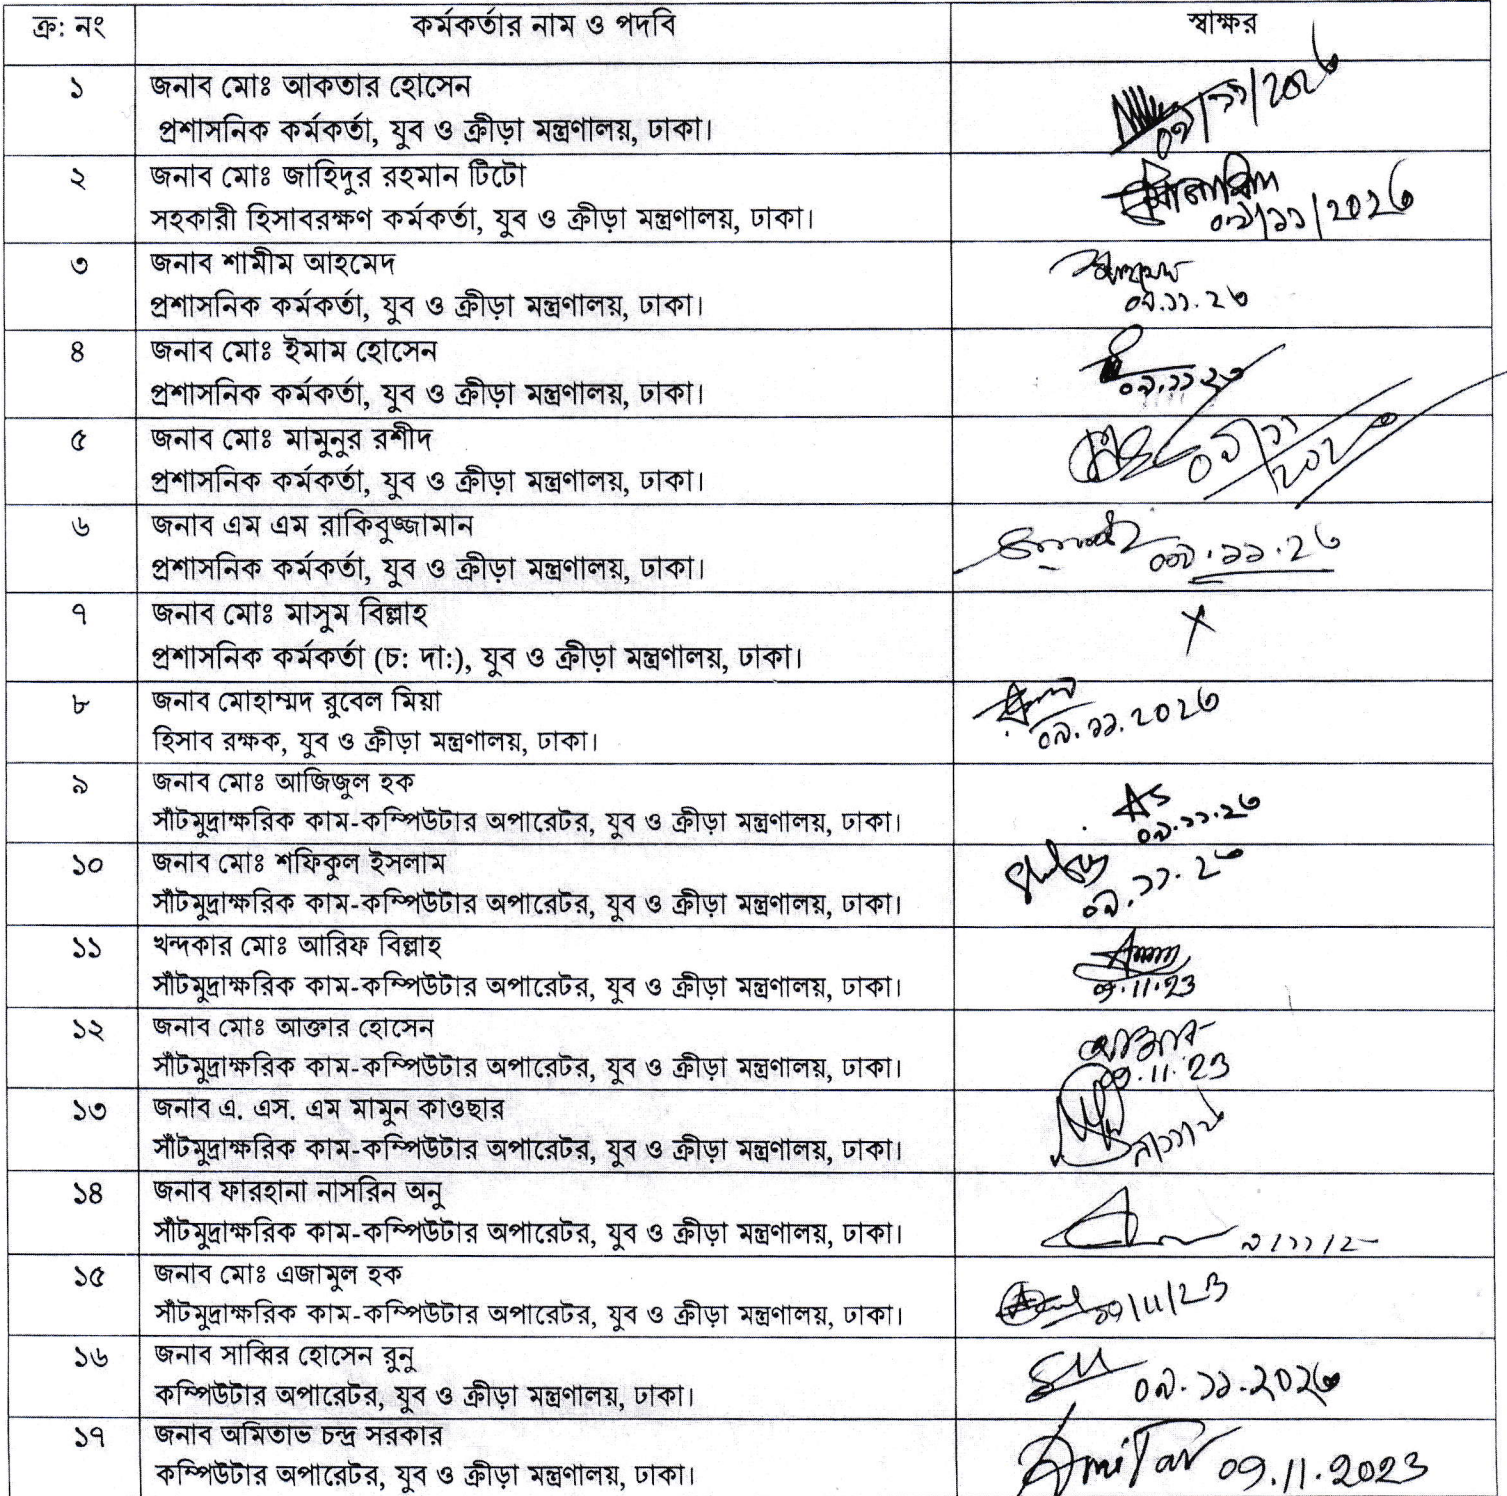 ক্র: নং কর্মকর্তার নাম ও পদবি স্বাক্ষর
১ জনাব মোঃ আকতার হোসেন
প্রশাসনিক কর্মকর্তা, যুব ও ক্রীড়া মন্ত্রণালয়, ঢাকা। ০৯/১১/২০২৩
২ জনাব মোঃ জাহিদুর রহমান টিটো
সহকারী হিসাবরক্ষণ কর্মকর্তা, যুব ও ক্রীড়া মন্ত্রণালয়, ঢাকা। ০৯/১১/২০২৩
৩ জনাব শামীম আহমেদ
প্রশাসনিক কর্মকর্তা, যুব ও ক্রীড়া মন্ত্রণালয়, ঢাকা। ০৯.১১.২৩
৪ জনাব মোঃ ইমাম হোসেন
প্রশাসনিক কর্মকর্তা, যুব ও ক্রীড়া মন্ত্রণালয়, ঢাকা। ০৯.১১.২৩
৫ জনাব মোঃ মামুনুর রশীদ
প্রশাসনিক কর্মকর্তা, যুব ও ক্রীড়া মন্ত্রণালয়, ঢাকা। ০৯/১১
৬ জনাব এম এম রাকিবুজ্জামান
প্রশাসনিক কর্মকর্তা, যুব ও ক্রীড়া মন্ত্রণালয়, ঢাকা। ০৯.১১.২৩
৭ জনাব মোঃ মাসুম বিল্লাহ
প্রশাসনিক কর্মকর্তা (চ: দা:), যুব ও ক্রীড়া মন্ত্রণালয়, ঢাকা।
৮ জনাব মোহাম্মদ রুবেল মিয়া
হিসাব রক্ষক, যুব ও ক্রীড়া মন্ত্রণালয়, ঢাকা। ০৯.১১.২০২৩
৯ জনাব মোঃ আজিজুল হক
সাঁটমুদ্রাক্ষরিক কাম-কম্পিউটার অপারেটর, যুব ও ক্রীড়া মন্ত্রণালয়, ঢাকা। ০৯.১১.২৩
১০ জনাব মোঃ শফিকুল ইসলাম
সাঁটমুদ্রাক্ষরিক কাম-কম্পিউটার অপারেটর, যুব ও ক্রীড়া মন্ত্রণালয়, ঢাকা। ০৯.১১.২৩
১১ খন্দকার মোঃ আরিফ বিল্লাহ
সাঁটমুদ্রাক্ষরিক কাম-কম্পিউটার অপারেটর, যুব ও ক্রীড়া মন্ত্রণালয়, ঢাকা। 9.11.23
১২ জনাব মোঃ আক্তার হোসেন
সাঁটমুদ্রাক্ষরিক কাম-কম্পিউটার অপারেটর, যুব ও ক্রীড়া মন্ত্রণালয়, ঢাকা। 09.11.23
১৩ জনাব এ. এস. এম মামুন কাওছার
সাঁটমুদ্রাক্ষরিক কাম-কম্পিউটার অপারেটর, যুব ও ক্রীড়া মন্ত্রণালয়, ঢাকা।
১৪ জনাব ফারহানা নাসরিন অনু
সাঁটমুদ্রাক্ষরিক কাম-কম্পিউটার অপারেটর, যুব ও ক্রীড়া মন্ত্রণালয়, ঢাকা।
১৫ জনাব মোঃ এজামুল হক
সাঁটমুদ্রাক্ষরিক কাম-কম্পিউটার অপারেটর, যুব ও ক্রীড়া মন্ত্রণালয়, ঢাকা। 09/11/23
১৬ জনাব সাব্বির হোসেন রুনু
কম্পিউটার অপারেটর, যুব ও ক্রীড়া মন্ত্রণালয়, ঢাকা। ০৯.১১.২০২৩
১৭ জনাব অমিতাভ চন্দ্র সরকার
কম্পিউটার অপারেটর, যুব ও ক্রীড়া মন্ত্রণালয়, ঢাকা। Amitav 09.11.2023